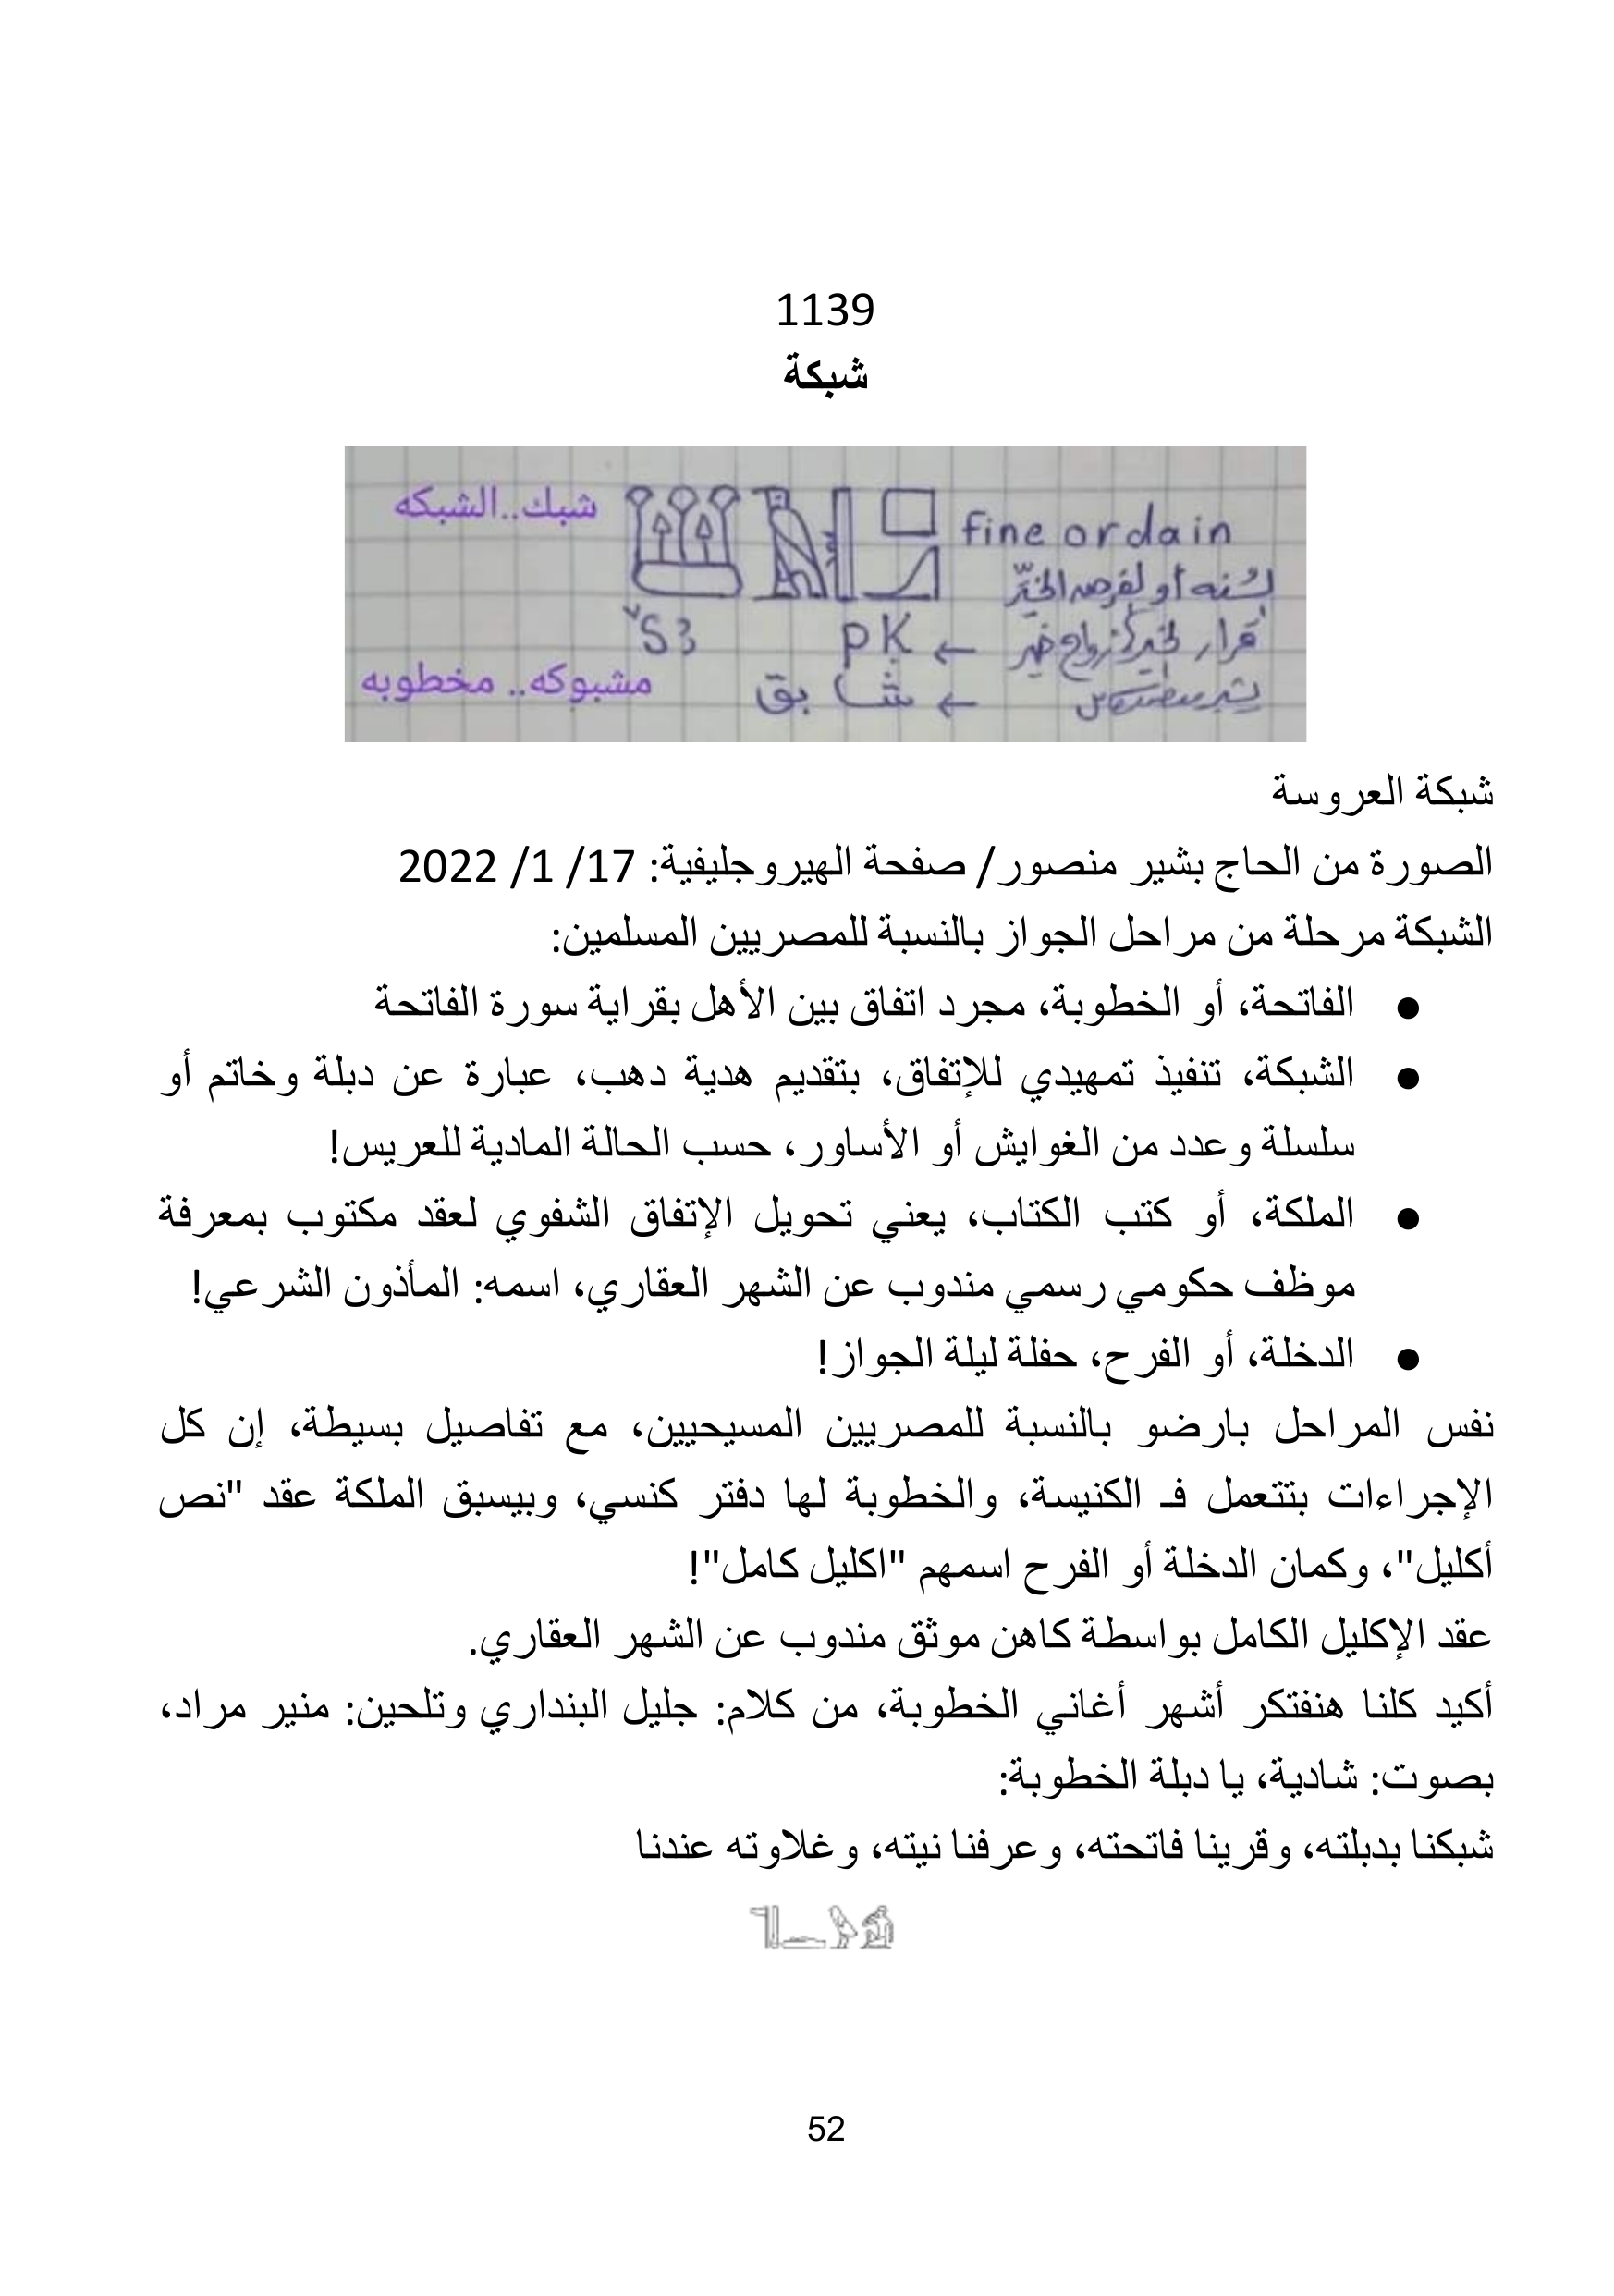 1139
شبكة
شبك..الشبكه
fine ordain
š3
pḳ ←
شا بق ←
مشبوكه.. مخطوبه
شبكة العروسة
الصورة من الحاج بشير منصور/ صفحة الهيروجليفية: 17/ 1/ 2022
الشبكة مرحلة من مراحل الجواز بالنسبة للمصريين المسلمين:
● الفاتحة، أو الخطوبة، مجرد اتفاق بين الأهل بقراية سورة الفاتحة
● الشبكة، تنفيذ تمهيدي للإتفاق، بتقديم هدية دهب، عبارة عن دبلة وخاتم أو
سلسلة وعدد من الغوايش أو الأساور، حسب الحالة المادية للعريس!
● الملكة، أو كتب الكتاب، يعني تحويل الإتفاق الشفوي لعقد مكتوب بمعرفة
موظف حكومي رسمي مندوب عن الشهر العقاري، اسمه: المأذون الشرعي!
● الدخلة، أو الفرح، حفلة ليلة الجواز!
نفس المراحل بارضو بالنسبة للمصريين المسيحيين، مع تفاصيل بسيطة، إن كل
الإجراءات بتتعمل فـ الكنيسة، والخطوبة لها دفتر كنسي، وبيسبق الملكة عقد "نص
أكليل"، وكمان الدخلة أو الفرح اسمهم "اكليل كامل"!
عقد الإكليل الكامل بواسطة كاهن موثق مندوب عن الشهر العقاري.
أكيد كلنا هنفتكر أشهر أغاني الخطوبة، من كلام: جليل البنداري وتلحين: منير مراد،
بصوت: شادية، يا دبلة الخطوبة:
شبكنا بدبلته، وقرينا فاتحته، وعرفنا نيته، وغلاوته عندنا
52